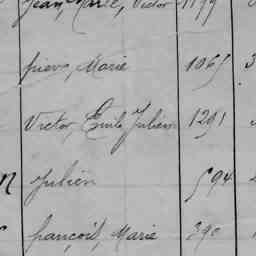 Jean, Marie, Victor 1199
pierre, Marie 1065 3
Victor, Emile Julien 1291
Julien 594
françois, Marie 390